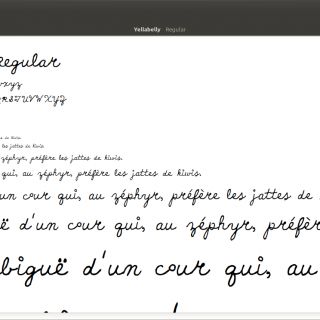 Yellabelly Regular
Regular
vwxyz
QRSTUVWXYZ
de kiwis.
les jattes de kiwis.
zéphyr, préfère les jattes de kiwis.
qui, au zéphyr, préfère les jattes de kiwis.
un cœur qui, au zéphyr, préfère les jattes de
uë d'un cœur qui, au zéphyr, préfèr
biguë d'un cœur qui, au